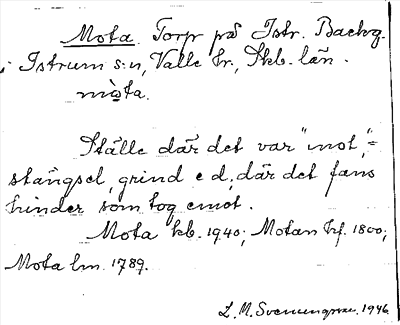 Mota. Torp på Istr. Backg.
i Istrum s:n, Valle hr., Skb. län.
mòta.
Ställe där det var "mot", =
stängsel, grind e d, där det fans
hinder som tog emot.
Mota kb. 1940; Motan hf. 1800;
Mota lm. 1789.
L. M. Svenungsson. 1946.